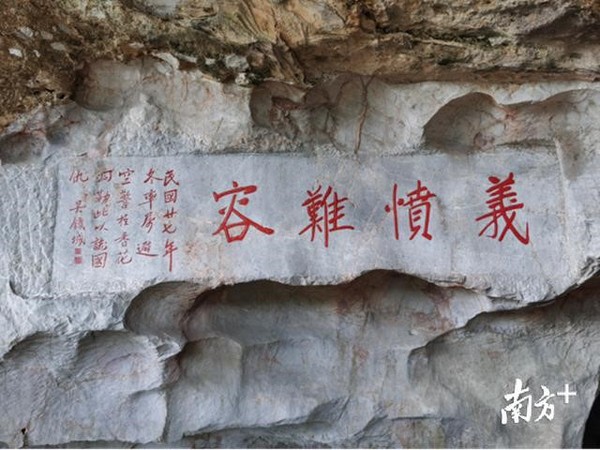 義憤難容
民國廿七年
冬 避
空警於香花
洞勒此以誌國
仇 吳鐵城
南方+